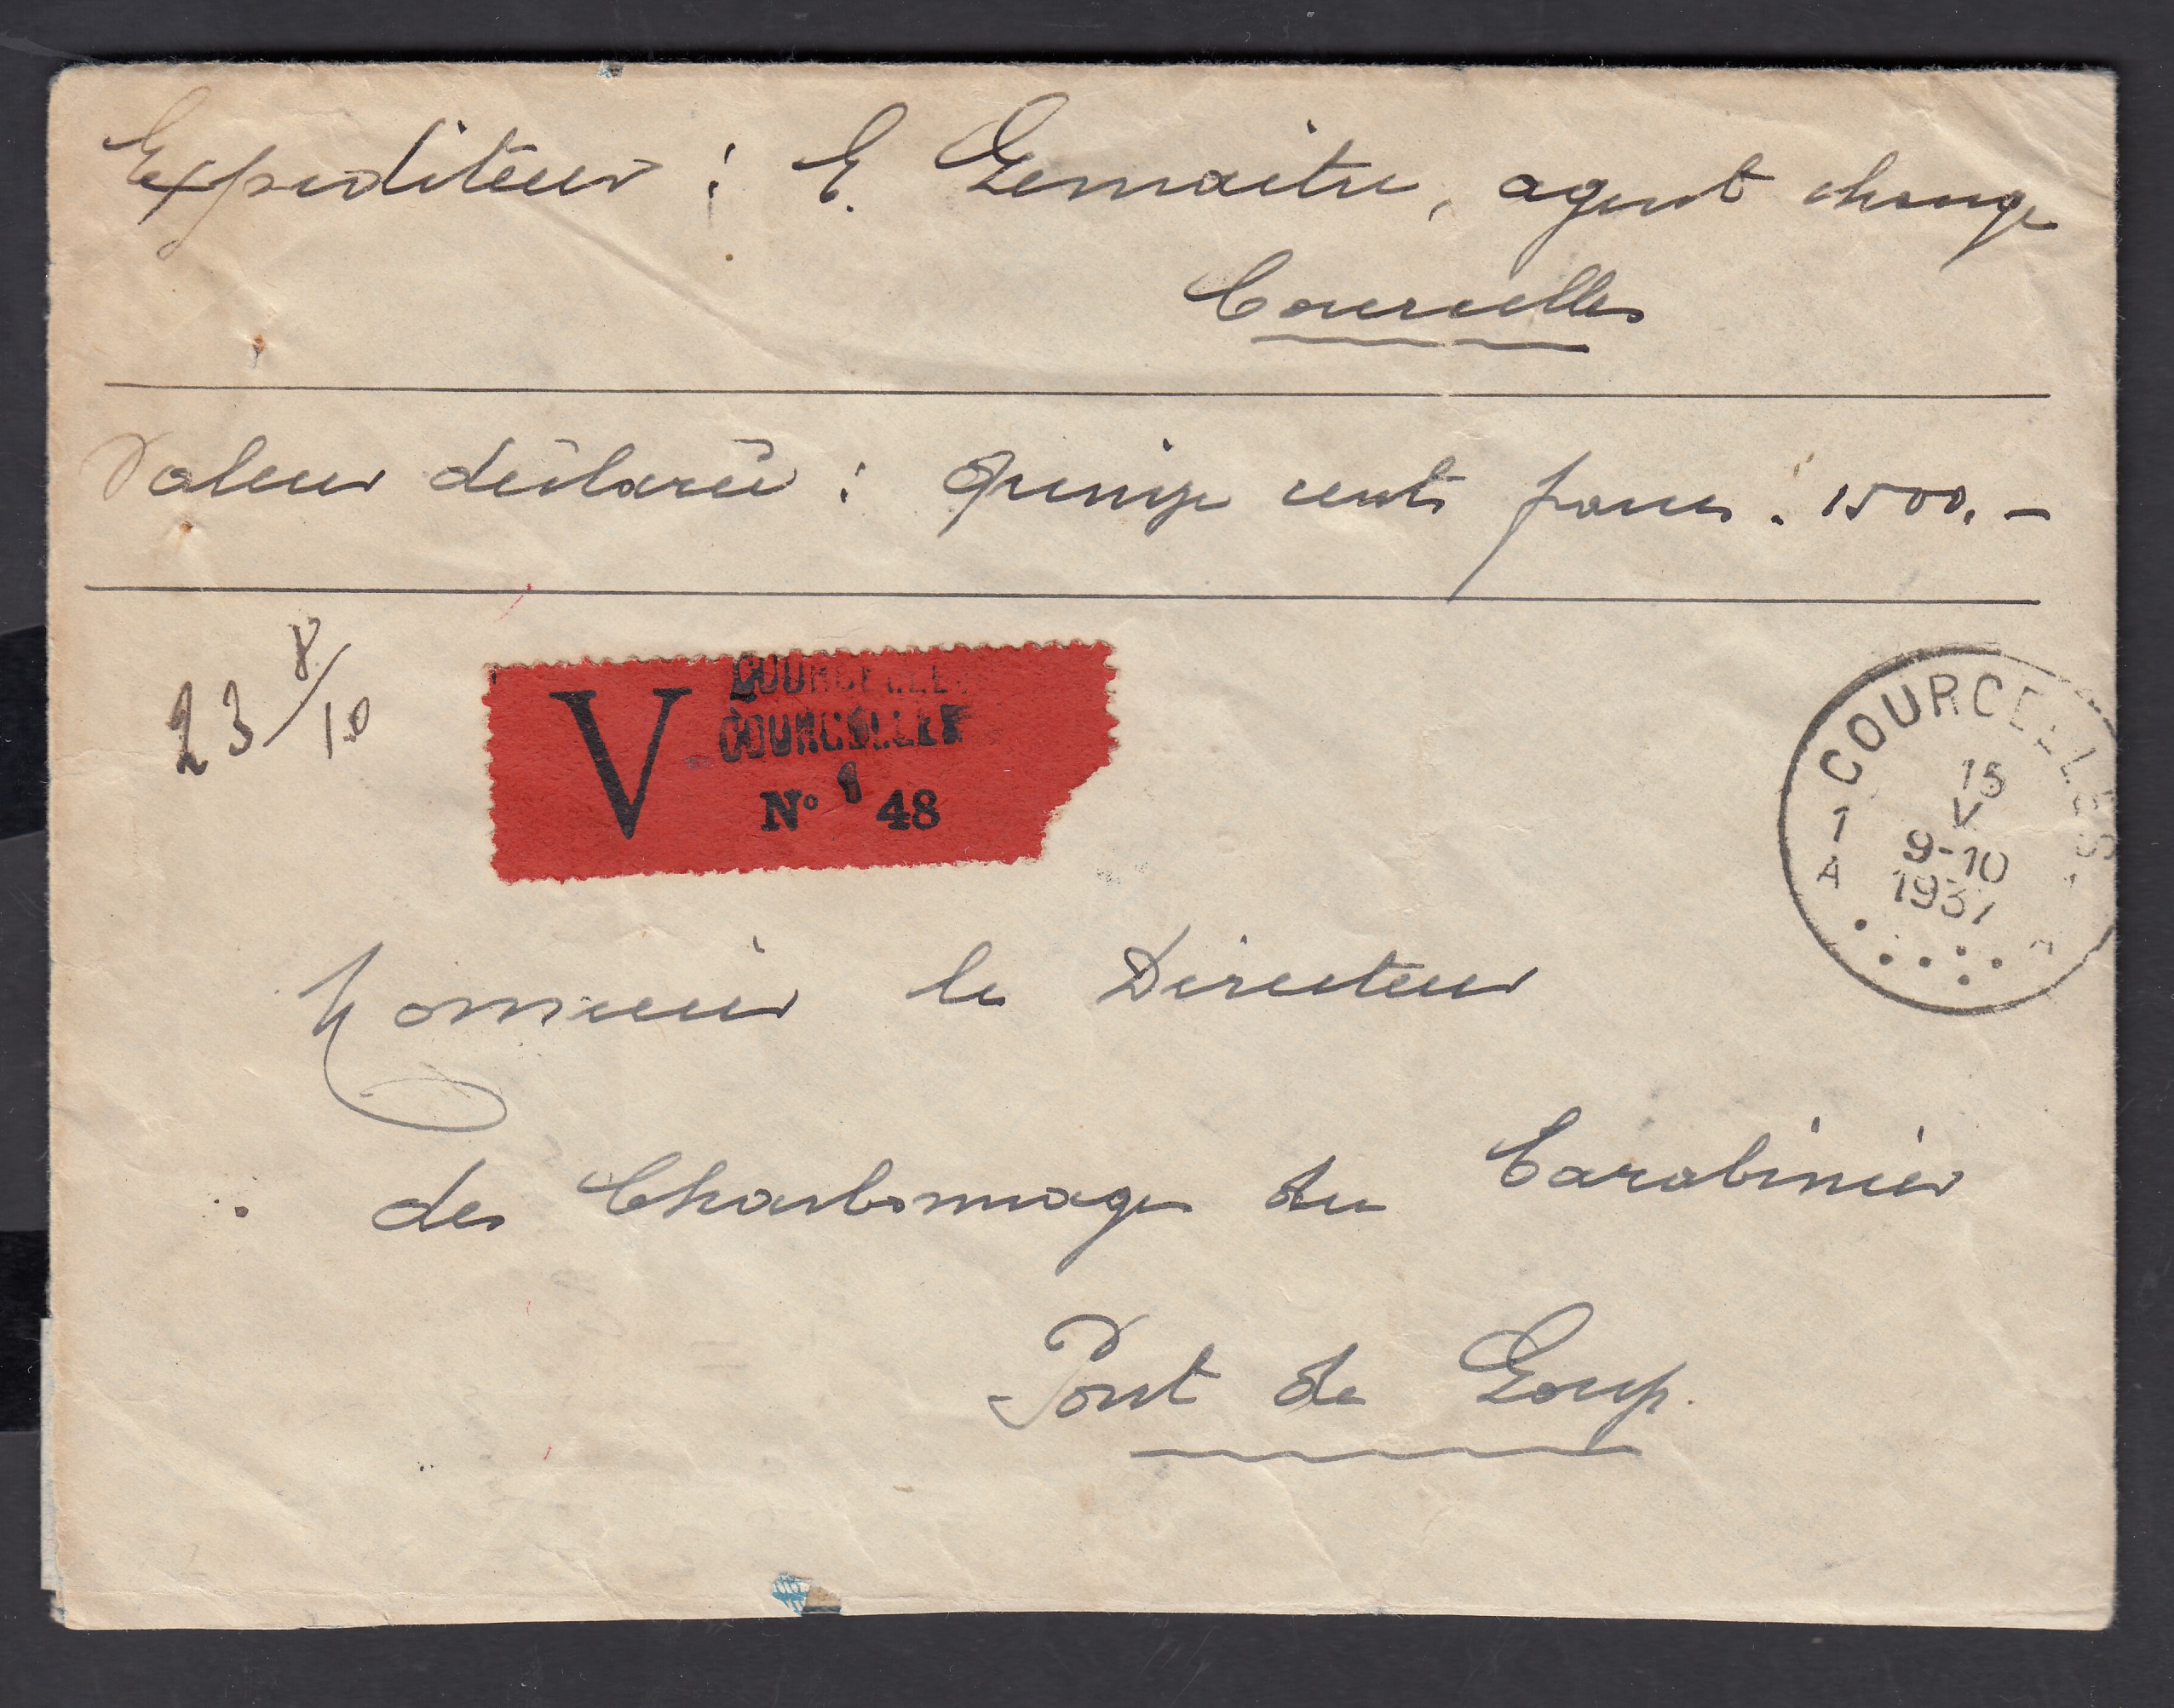 Expéditeur : E. Lemaitre, agent change
Courcelles
Valeur déclarée : quinze cents francs. 1500.-
23 8/10
V
COURCELLES
COURCELLES
N° 48
COURCELLES
1 A
15
V
9-10
1937
Monsieur le Directeur
des Charbonnages du Carabinier
Pont de Loup.